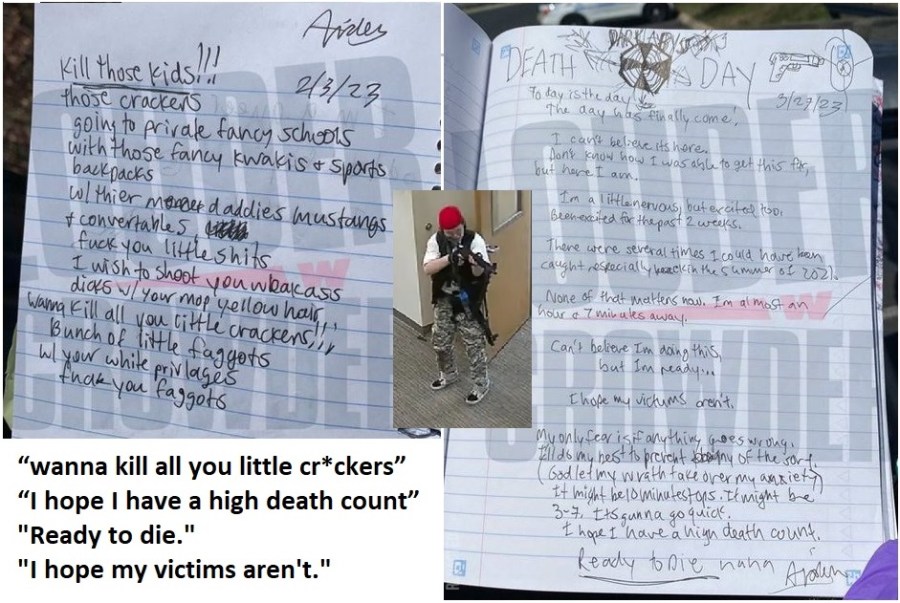 Aiden
Kill those kids!!!
2/3/23
those crackers
going to private fancy schools
with those fancy kwakis + sports
backpacks
w/ thier daddies mustangs
+ convertables
fuck you little shits
I wish to shoot you
dicks w/ your mop yellow hair
wanna kill all you little crackers!!!
Bunch of little faggots
w/ your white privlages
fuck you faggots
LOUDER
W
CROWDER
DARK ABYSS
DEATH DAY
3/27/23
Today is the day
The day has finally come!
I can't believe its here.
Don't know how I was able to get this far,
but here I am.
I'm a little nervous, but excited too.
Been excited for the past 2 weeks.
There were several times I could have been
caught especially back in the summer of 2021.
None of that matters now. I'm almost an
hour & 7 minutes away.
Can't believe I'm doing this,
but I'm ready...
I hope my victims aren't.
My only fear is if anything goes wrong.
I'll do my best to prevent any of the sort.
(God let my wrath take over my anxiety)
It might be 10 minutes tops. It might be
3-7. Its gunna go quick.
I hope I have a high death count.
Ready to Die haha
Aiden
LOUDER
W
CROWDER
“wanna kill all you little cr*ckers”
“I hope I have a high death count”
"Ready to die."
"I hope my victims aren't."